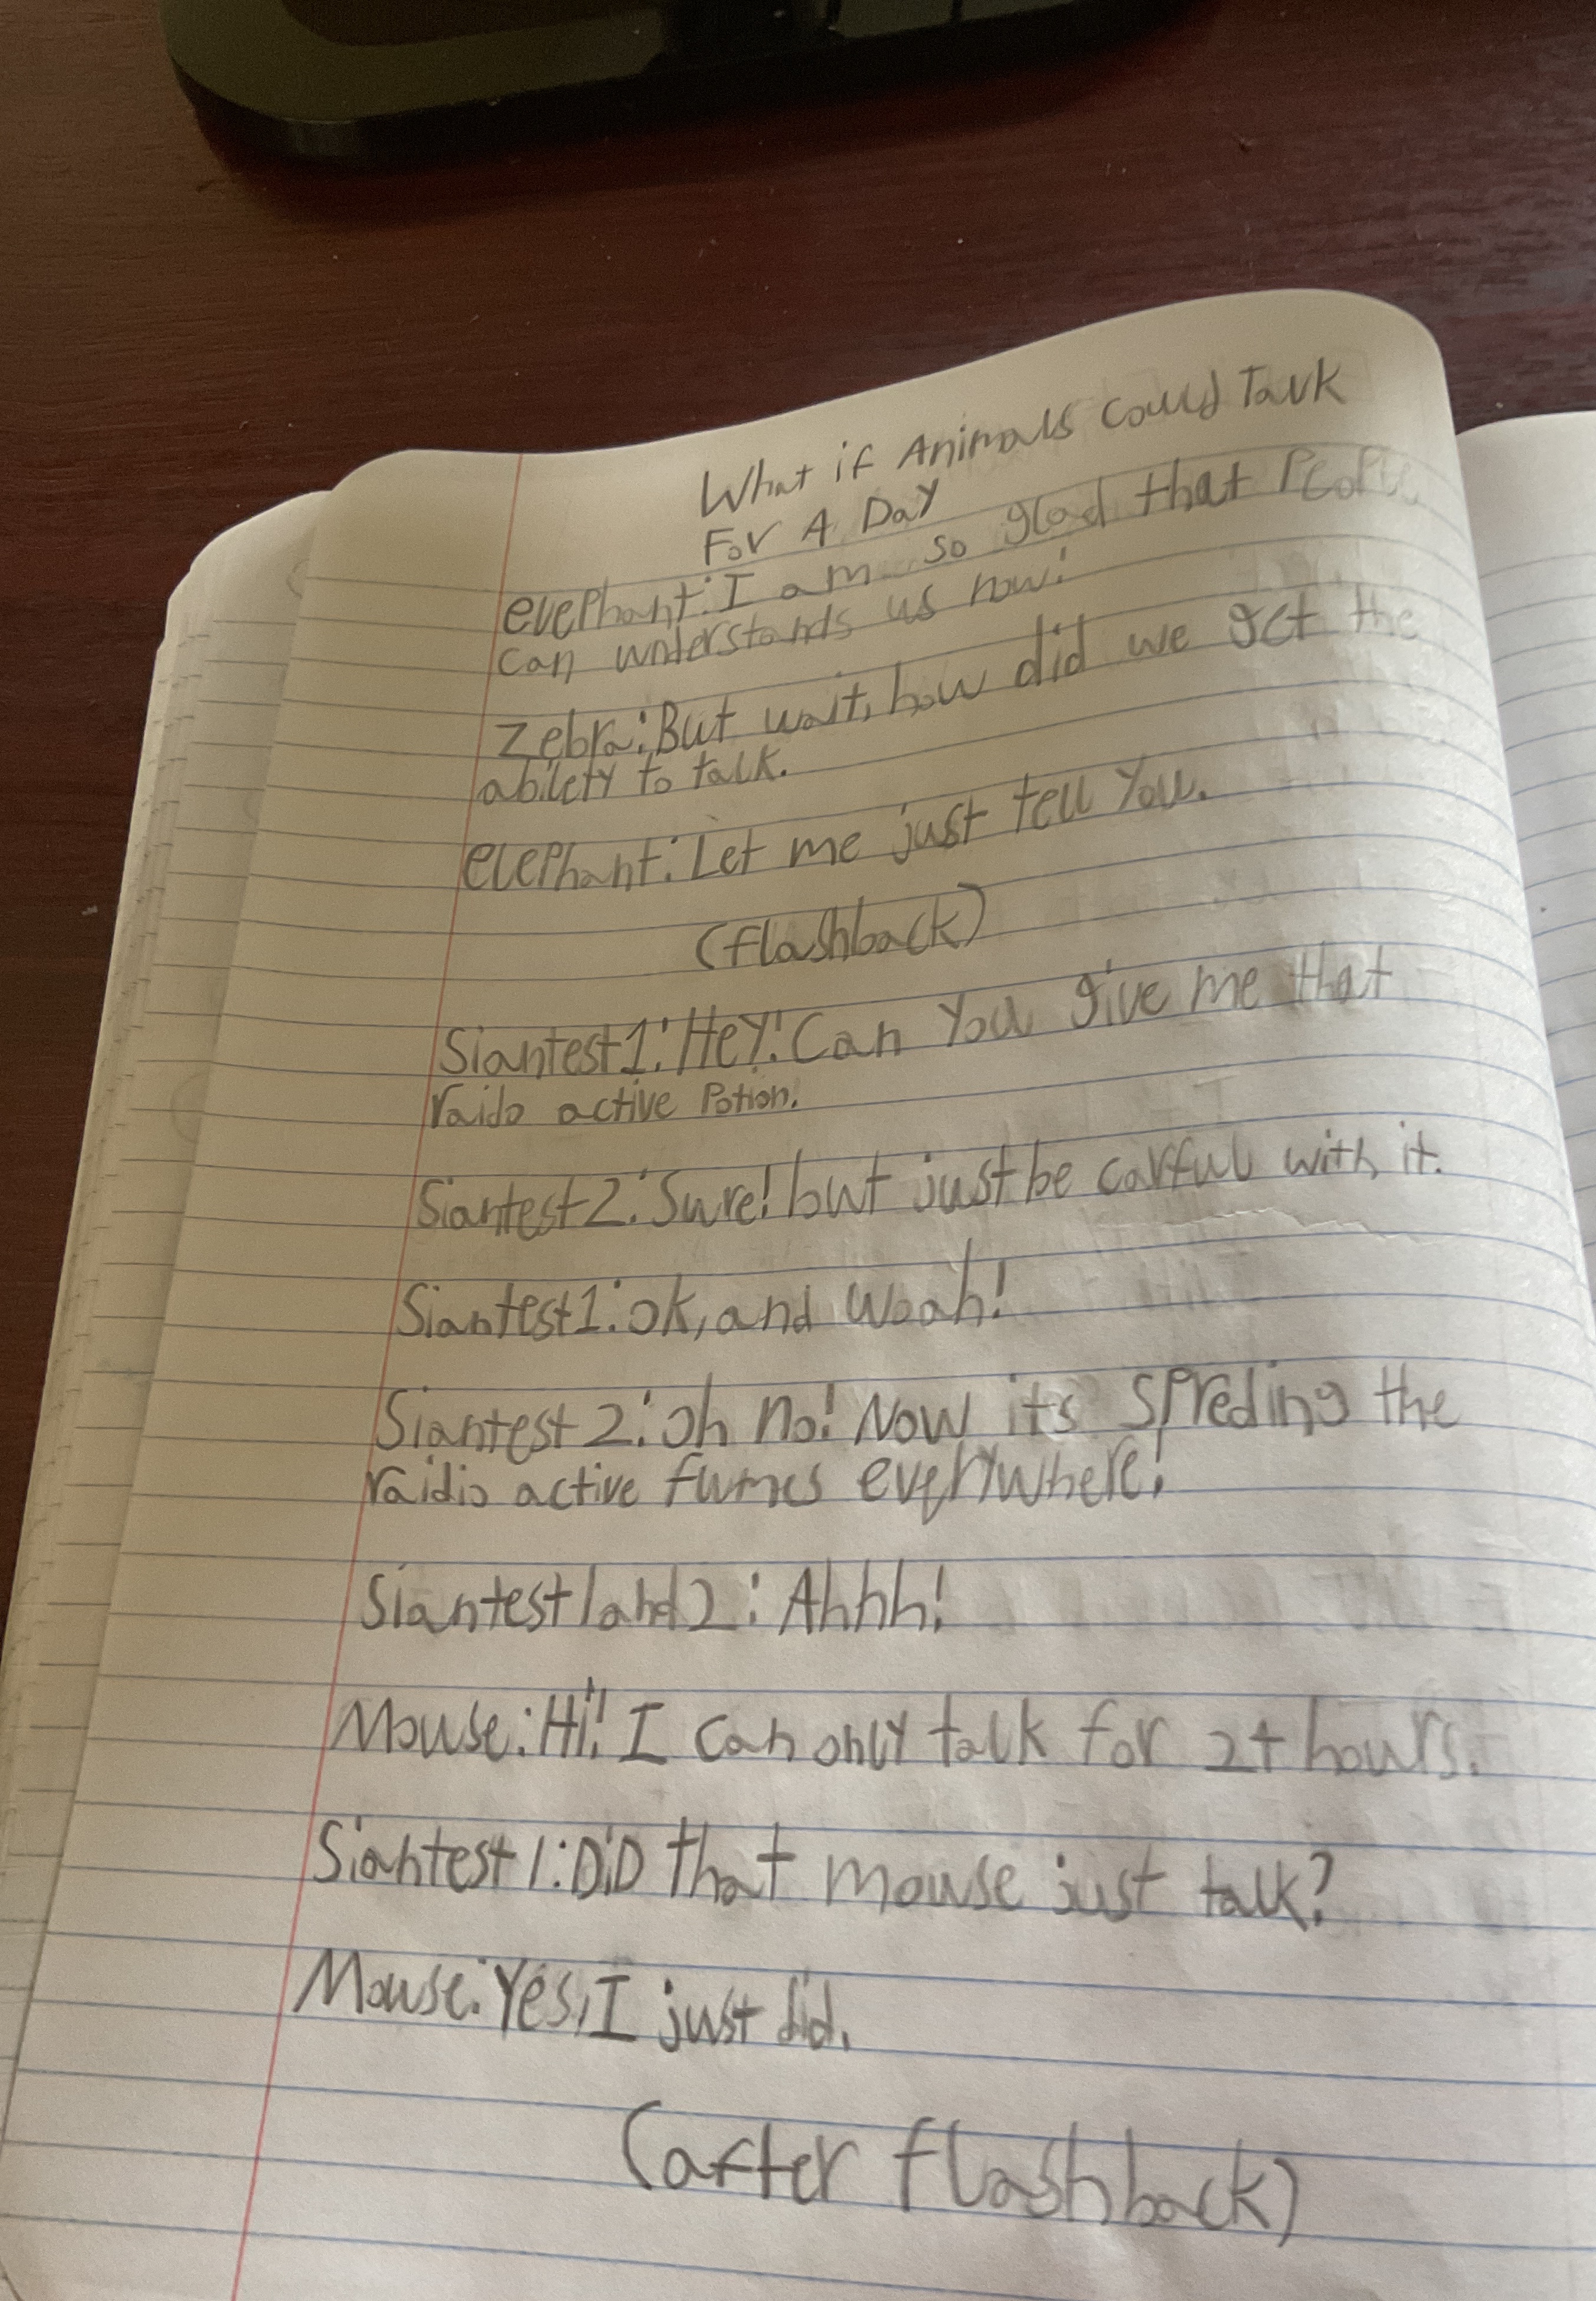 What if Animals Could Talk
For A Day
elephant: I am so glad that People
can understands us now!
Zebra: But wait, how did we get the
abilety to talk.
elephant: Let me just tell you.
(flashback)
Siantest 1: Hey! Can you give me that
raido active Potion.
Siantest 2: Sure! but just be carful with it.
Siantest 1: ok, and Woah!
Siantest 2: oh no! Now its spreding the
raidio active fumes everywhere!
Siantest 1 and 2: Ahhh!
Mouse: Hi! I can only talk for 24 hours.
Siantest 1: DiD that mouse just talk?
Mouse: Yes, I just did.
(after flashback)